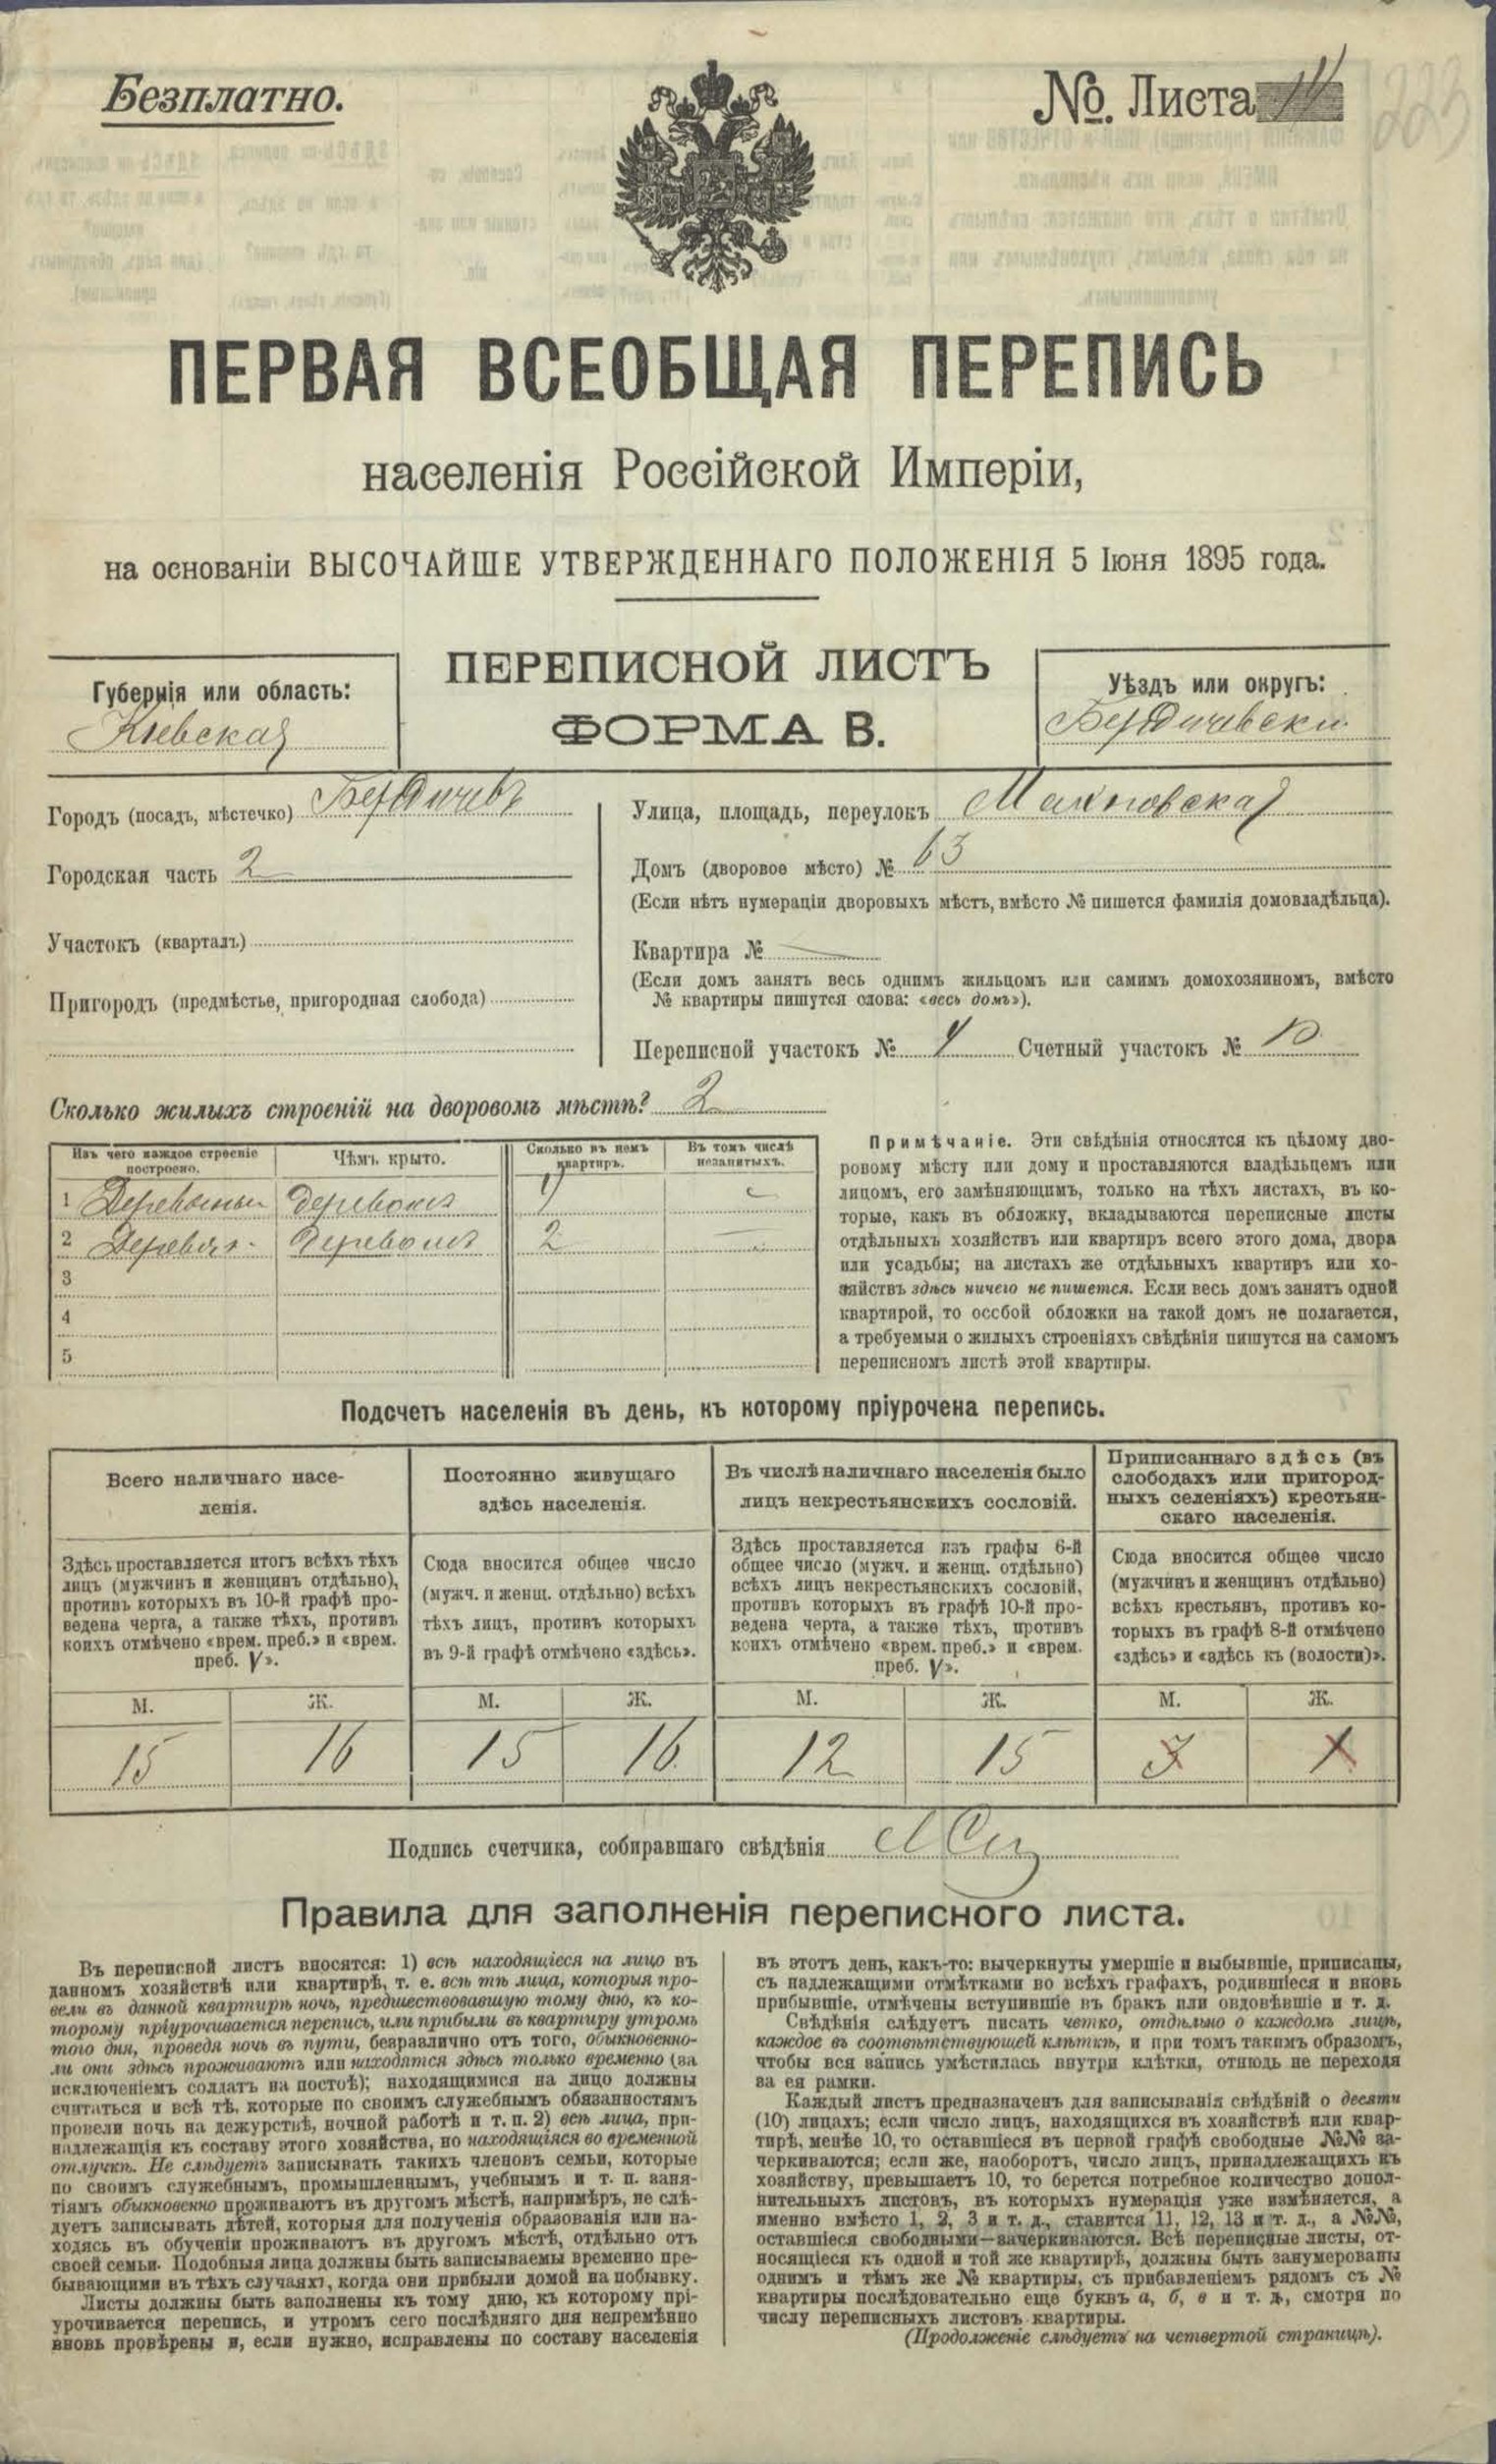 Безплатно.
№. Листа 11
223
ПЕРВАЯ ВСЕОБЩАЯ ПЕРЕПИСЬ
населенія Россійской Имперіи,
на основаніи ВЫСОЧАЙШЕ УТВЕРЖДЕННАГО ПОЛОЖЕНІЯ 5 Іюня 1895 года.
ПЕРЕПИСНОЙ ЛИСТЪ
ФОРМА В.
Губернія или область:
Кіевская
Уѣздъ или округъ:
Бердичевски
Городъ (посадъ, мѣстечко) Бердичевъ
Городская часть 2
Участокъ (кварталъ)
Пригородъ (предмѣстье, пригородная слобода)
Улица, площадь, переулокъ Махновская
Домъ (дворовое мѣсто) № 63
(Если нѣтъ нумераціи дворовыхъ мѣстъ, вмѣсто № пишется фамилія домовладѣльца).
Квартира № —
(Если домъ занятъ весь однимъ жильцомъ или самимъ домохозяиномъ, вмѣсто
№ квартиры пишутся слова: «весь домъ»).
Переписной участокъ № 4 Счетный участокъ № 10
Сколько жилыхъ строеній на дворовомъ мѣстѣ? 2
Изъ чего каждое строеніе построено. Чѣмъ крыто. Сколько въ немъ квартиръ. Въ томъ числѣ незанятыхъ.
1
2 2 —
3
4
5
Примѣчаніе. Эти свѣдѣнія относятся къ цѣлому дво-
ровому мѣсту или дому и проставляются владѣльцемъ или
лицомъ, его замѣняющимъ, только на тѣхъ листахъ, въ ко-
торые, какъ въ обложку, вкладываются переписные листы
отдѣльныхъ хозяйствъ или квартиръ всего этого дома, двора
или усадьбы; на листахъ же отдѣльныхъ квартиръ или хо-
зяйствъ здѣсь ничего не пишется. Если весь домъ занятъ одной
квартирой, то особой обложки на такой домъ не полагается,
а требуемыя о жилыхъ строеніяхъ свѣдѣнія пишутся на самомъ
переписномъ листѣ этой квартиры.
Подсчетъ населенія въ день, къ которому пріурочена перепись.
Всего наличнаго насе-
ленія.
Здѣсь проставляется итогъ всѣхъ тѣхъ
лицъ (мужчинъ и женщинъ отдѣльно),
противъ которыхъ въ 10-й графѣ про-
ведена черта, а также тѣхъ, противъ
коихъ отмѣчено «врем. преб.» и «врем.
преб. V».
М. Ж.
15 16
Постоянно живущаго
здѣсь населенія.
Сюда вносится общее число
(мужч. и женщ. отдѣльно) всѣхъ
тѣхъ лицъ, противъ которыхъ
въ 9-й графѣ отмѣчено «здѣсь».
М. Ж.
15 16
Въ числѣ наличнаго населенія было
лицъ некрестьянскихъ сословій.
Здѣсь проставляется изъ графы 6-й
общее число (мужч. и женщ. отдѣльно)
всѣхъ лицъ некрестьянскихъ сословій,
противъ которыхъ въ графѣ 10-й про-
ведена черта, а также тѣхъ, противъ
коихъ отмѣчено «врем. преб.» и «врем.
преб. V».
М. Ж.
12 15
Приписаннаго здѣсь (въ
слободахъ или пригород-
ныхъ селеніяхъ) крестьян-
скаго населенія.
Сюда вносится общее число
(мужчинъ и женщинъ отдѣльно)
всѣхъ крестьянъ, противъ ко-
торыхъ въ графѣ 8-й отмѣчено
«здѣсь» и «здѣсь къ (волости)».
М. Ж.
3 1
Подпись счетчика, собиравшаго свѣдѣнія
Правила для заполненія переписного листа.
Въ переписной листъ вносятся: 1) всѣ находящіеся на лицо въ
данномъ хозяйствѣ или квартирѣ, т. е. всѣ тѣ лица, которыя про-
вели въ данной квартирѣ ночь, предшествовавшую тому дню, къ ко-
торому пріурочивается перепись, или прибыли въ квартиру утромъ
того дня, проведя ночь въ пути, безразлично отъ того, обыкновенно-
ли они здѣсь проживаютъ или находятся здѣсь только временно (за
исключеніемъ солдатъ на постоѣ); находящимися на лицо должны
считаться и всѣ тѣ, которые по своимъ служебнымъ обязанностямъ
провели ночь на дежурствѣ, ночной работѣ и т. п. 2) всѣ лица, при-
надлежащія къ составу этого хозяйства, но находящіяся во временной
отлучкѣ. Не слѣдуетъ записывать такихъ членовъ семьи, которые
по своимъ служебнымъ, промышленнымъ, учебнымъ и т. п. заня-
тіямъ обыкновенно проживаютъ въ другомъ мѣстѣ, напримѣръ, не слѣ-
дуетъ записывать дѣтей, которыя для полученія образованія или на-
ходясь въ обученіи проживаютъ въ другомъ мѣстѣ, отдѣльно отъ
своей семьи. Подобныя лица должны быть записываемы временно пре-
бывающими въ тѣхъ случаяхъ, когда они прибыли домой на побывку.
Листы должны быть заполнены къ тому дню, къ которому прі-
урочивается перепись, и утромъ сего послѣдняго дня непремѣнно
вновь провѣрены и, если нужно, исправлены по составу населенія
въ этотъ день, какъ-то: вычеркнуты умершіе и выбывшіе, приписаны,
съ надлежащими отмѣтками во всѣхъ графахъ, родившіеся и вновь
прибывшіе, отмѣчены вступившіе въ бракъ или овдовѣвшіе и т. д.
Свѣдѣнія слѣдуетъ писать четко, отдѣльно о каждомъ лицѣ,
каждое въ соотвѣтствующей клѣткѣ, и при томъ такимъ образомъ,
чтобы вся запись умѣстилась внутри клѣтки, отнюдь не переходя
за ея рамки.
Каждый листъ предназначенъ для записыванія свѣдѣній о десяти
(10) лицахъ; если число лицъ, находящихся въ хозяйствѣ или квар-
тирѣ, менѣе 10, то оставшіеся въ первой графѣ свободные №№ за-
черкиваются; если же, наоборотъ, число лицъ, принадлежащихъ къ
хозяйству, превышаетъ 10, то берется потребное количество допол-
нительныхъ листовъ, въ которыхъ нумерація уже измѣняется, а
именно вмѣсто 1, 2, 3 и т. д., ставится 11, 12, 13 и т. д., а №№,
оставшіеся свободными—зачеркиваются. Всѣ переписные листы, от-
носящіеся къ одной и той же квартирѣ, должны быть занумерованы
однимъ и тѣмъ же № квартиры, съ прибавленіемъ рядомъ съ №
квартиры послѣдовательно еще буквъ а, б, в и т. д., смотря по
числу переписныхъ листовъ квартиры.
(Продолженіе слѣдуетъ на четвертой страницѣ).